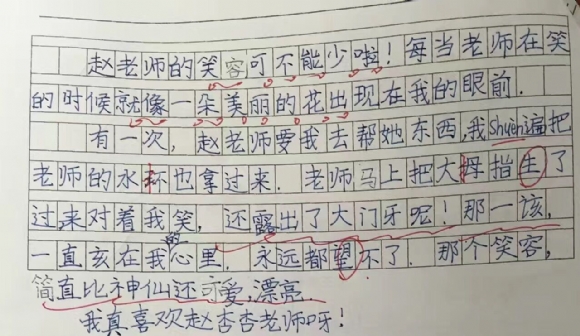 赵老师的笑容可不能少啦！每当老师在笑
的时候就像一朵美丽的花出现在我的眼前．
有一次，赵老师要我去帮她东西，我Shùn遍把
老师的水杯也拿过来．老师马上把大拇指生了
过来对着我笑，还露出了大门牙呢！那一该，
一直亥在我的心里．永远都望不了．那个笑容，
简直比神仙还可爱，漂亮．
我真喜欢赵杏杏老师呀！